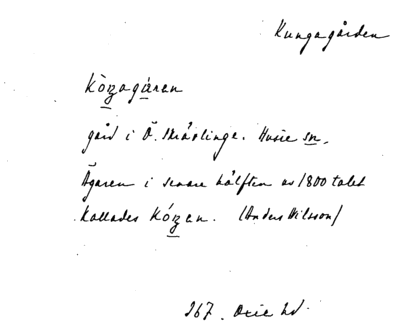 Kungagården
Kòngagáren
gård i Ö. Skrävlinge. Husie sn.
Ägaren i senare hälften av 1800 talet
kallades Kóngen. (Anders Nilsson)
267. Oxie hd.